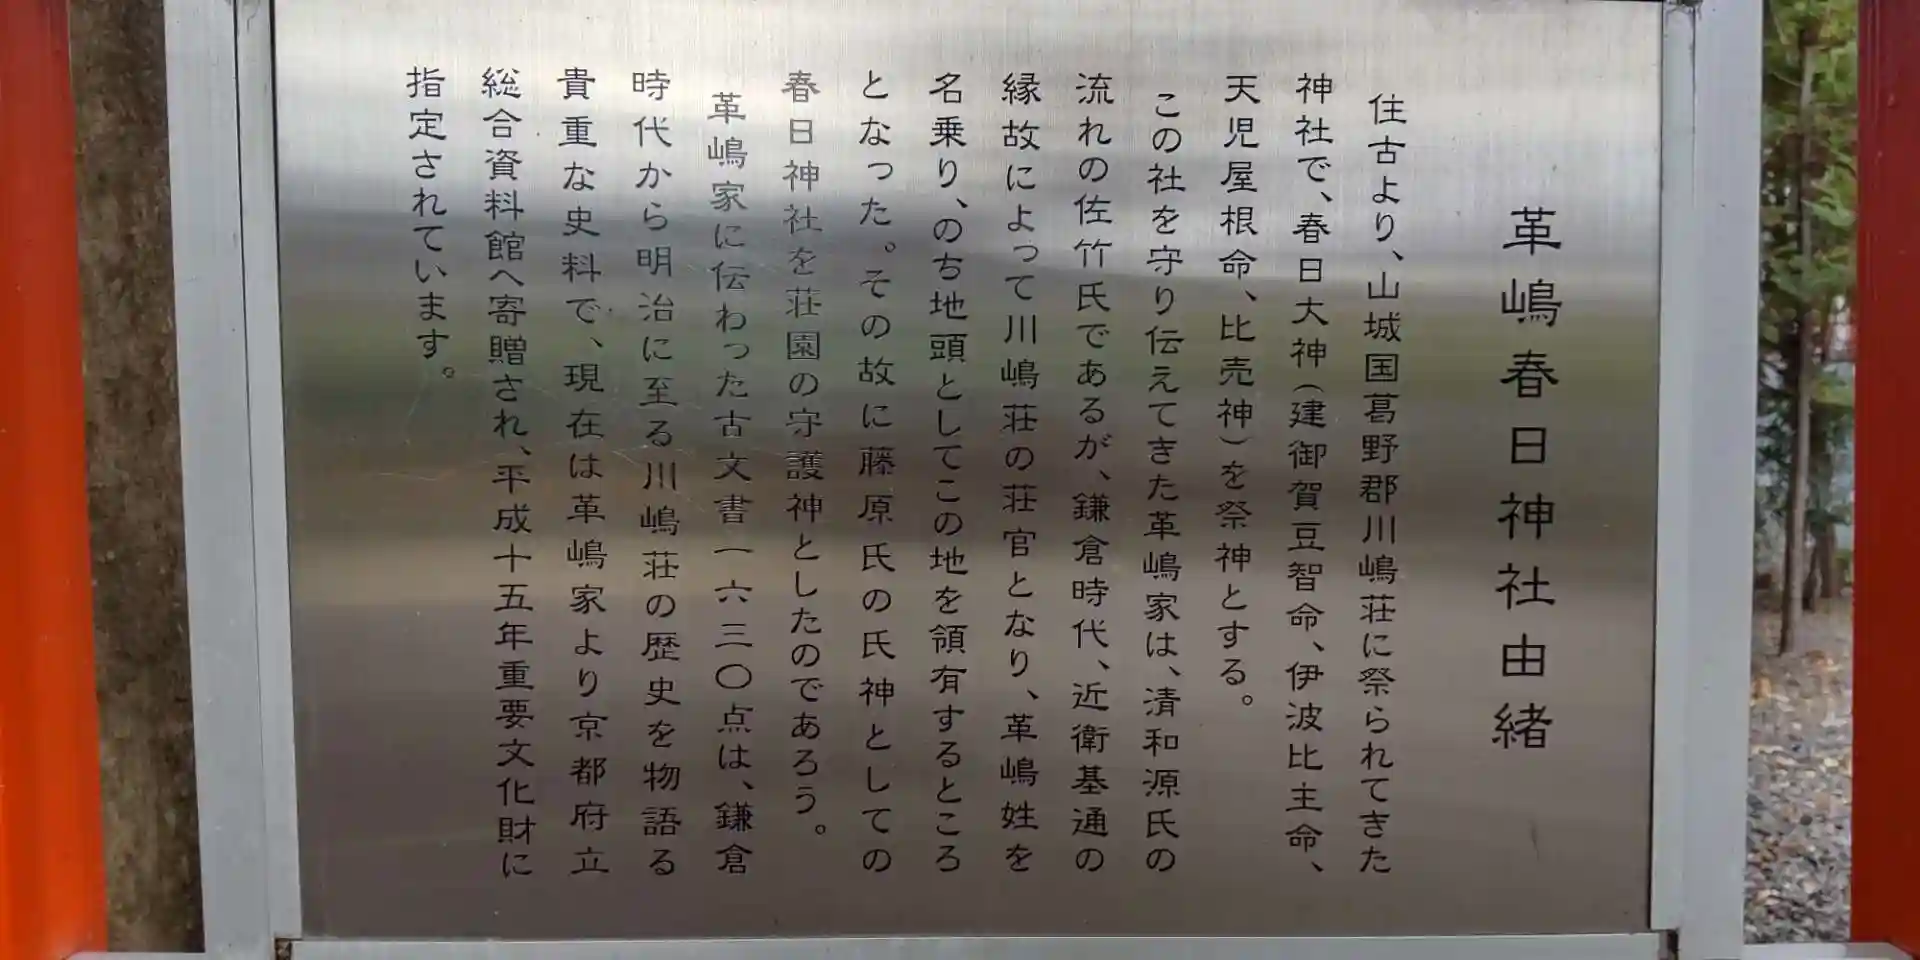 革嶋春日神社由緒
住古より、山城国葛野郡川嶋荘に祭られてきた
神社で、春日大神（建御賀豆智命、伊波比主命、
天児屋根命、比売神）を祭神とする。
この社を守り伝えてきた革嶋家は、清和源氏の
流れの佐竹氏であるが、鎌倉時代、近衛基通の
縁故によって川嶋荘の荘官となり、革嶋姓を
名乗り、のち地頭としてこの地を領有するところ
となった。その故に藤原氏の氏神としての
春日神社を荘園の守護神としたのであろう。
革嶋家に伝わった古文書一六三〇点は、鎌倉
時代から明治に至る川嶋荘の歴史を物語る
貴重な史料で、現在は革嶋家より京都府立
総合資料館へ寄贈され、平成十五年重要文化財に
指定されています。